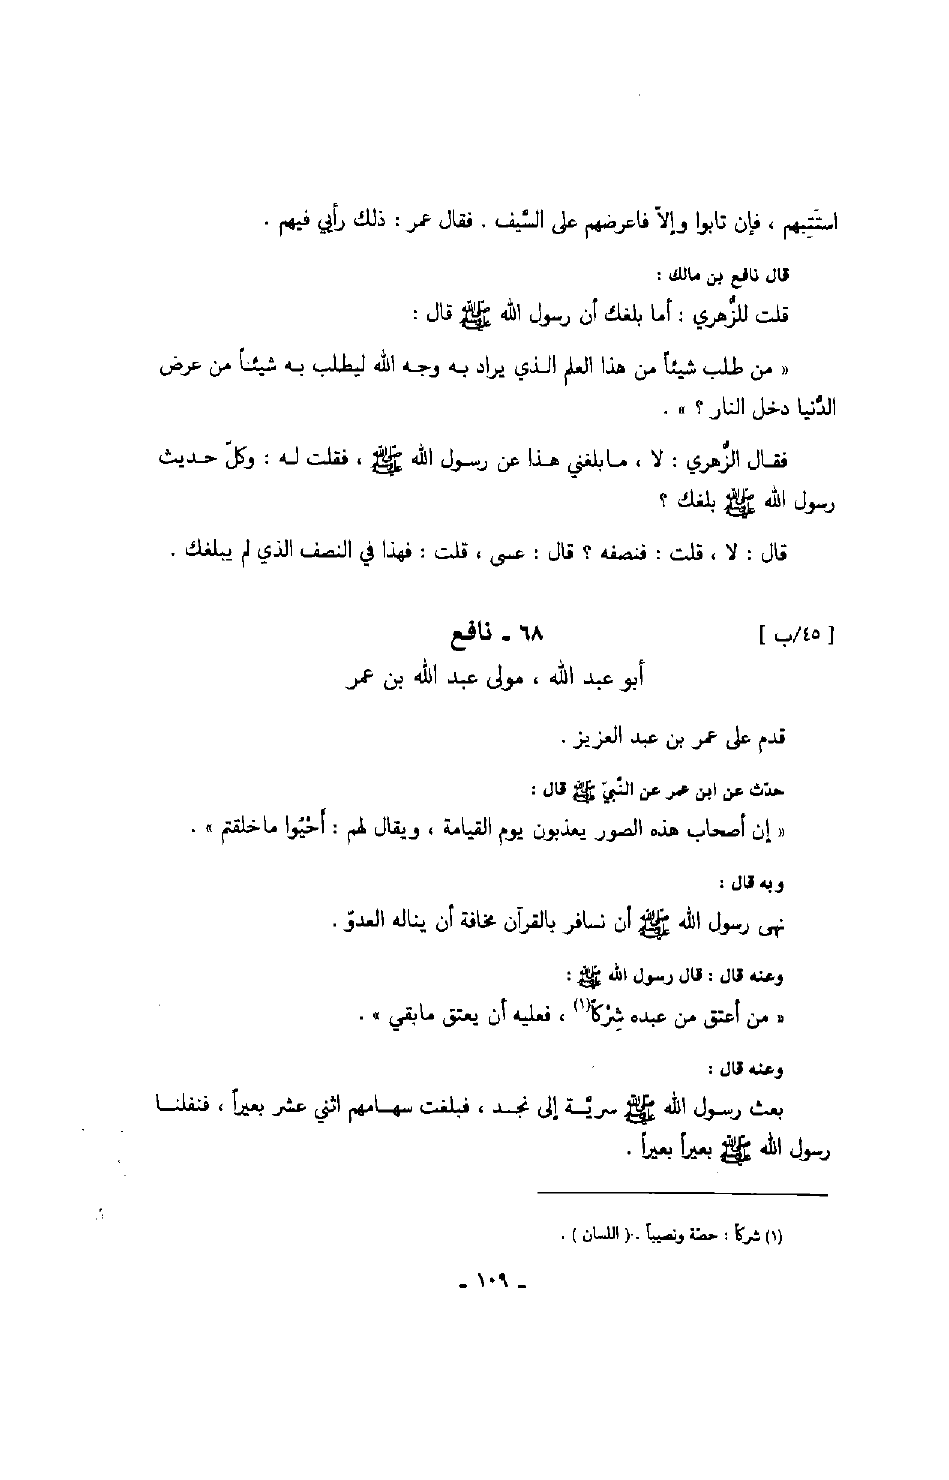 استَتِبهم ، فإن تابوا وإلاّ فاعرضهم على السَّيف . فقال عمر : ذلك رأبي فيهم .
قال نافع بن مالك :
قلت للزُّهري : أما بلغك أن رسول الله ﷺ قال :
« من طلب شيئاً من هذا العلم الـذي يراد بـه وجـه الله ليطلب بـه شيئـاً من عرض
الدُّنيا دخل النار ؟ » .
فقـال الزُّهري : لا ، مـابلغني هـذا عن رسـول الله ﷺ ، فقلت لـه : وكلّ حـديث
رسول الله ﷺ بلغك ؟
قال : لا ، قلت : فنصفه ؟ قال : عسى ، قلت : فهذا في النصف الذي لم يبلغك .
[ ٤٥/ب ] ٦٨ - نافع
أبو عبد الله ، مولى عبد الله بن عمر
قدم على عمر بن عبد العزيز .
حدّث عن ابن عمر عن النَّبيّ ﷺ قال :
« إن أصحاب هذه الصور يعذبون يوم القيامة ، ويقال لهم : أَحْيُوا ماخلقتم » .
وبه قال :
نهى رسول الله ﷺ أن نسافر بالقرآن مخافة أن يناله العدوّ .
وعنه قال : قال رسول الله ﷺ :
« من أعتق من عبده شِرْكاً(١) ، فعليه أن يعتق مابقي » .
وعنه قال :
بعث رسـول الله ﷺ سريّـة إلى نجـد ، فبلغت سهـامهم اثني عشر بعيراً ، فنفلنـا
رسول الله ﷺ بعيراً بعيراً .
(١) شركاً : حصّة ونصيباً . ( اللسان ) .
- ١٠٩ -